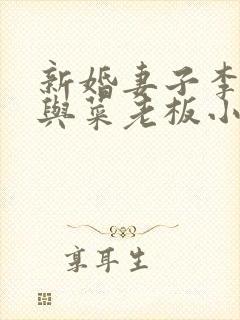 新婚妻子李
與菜老板小
享耳生